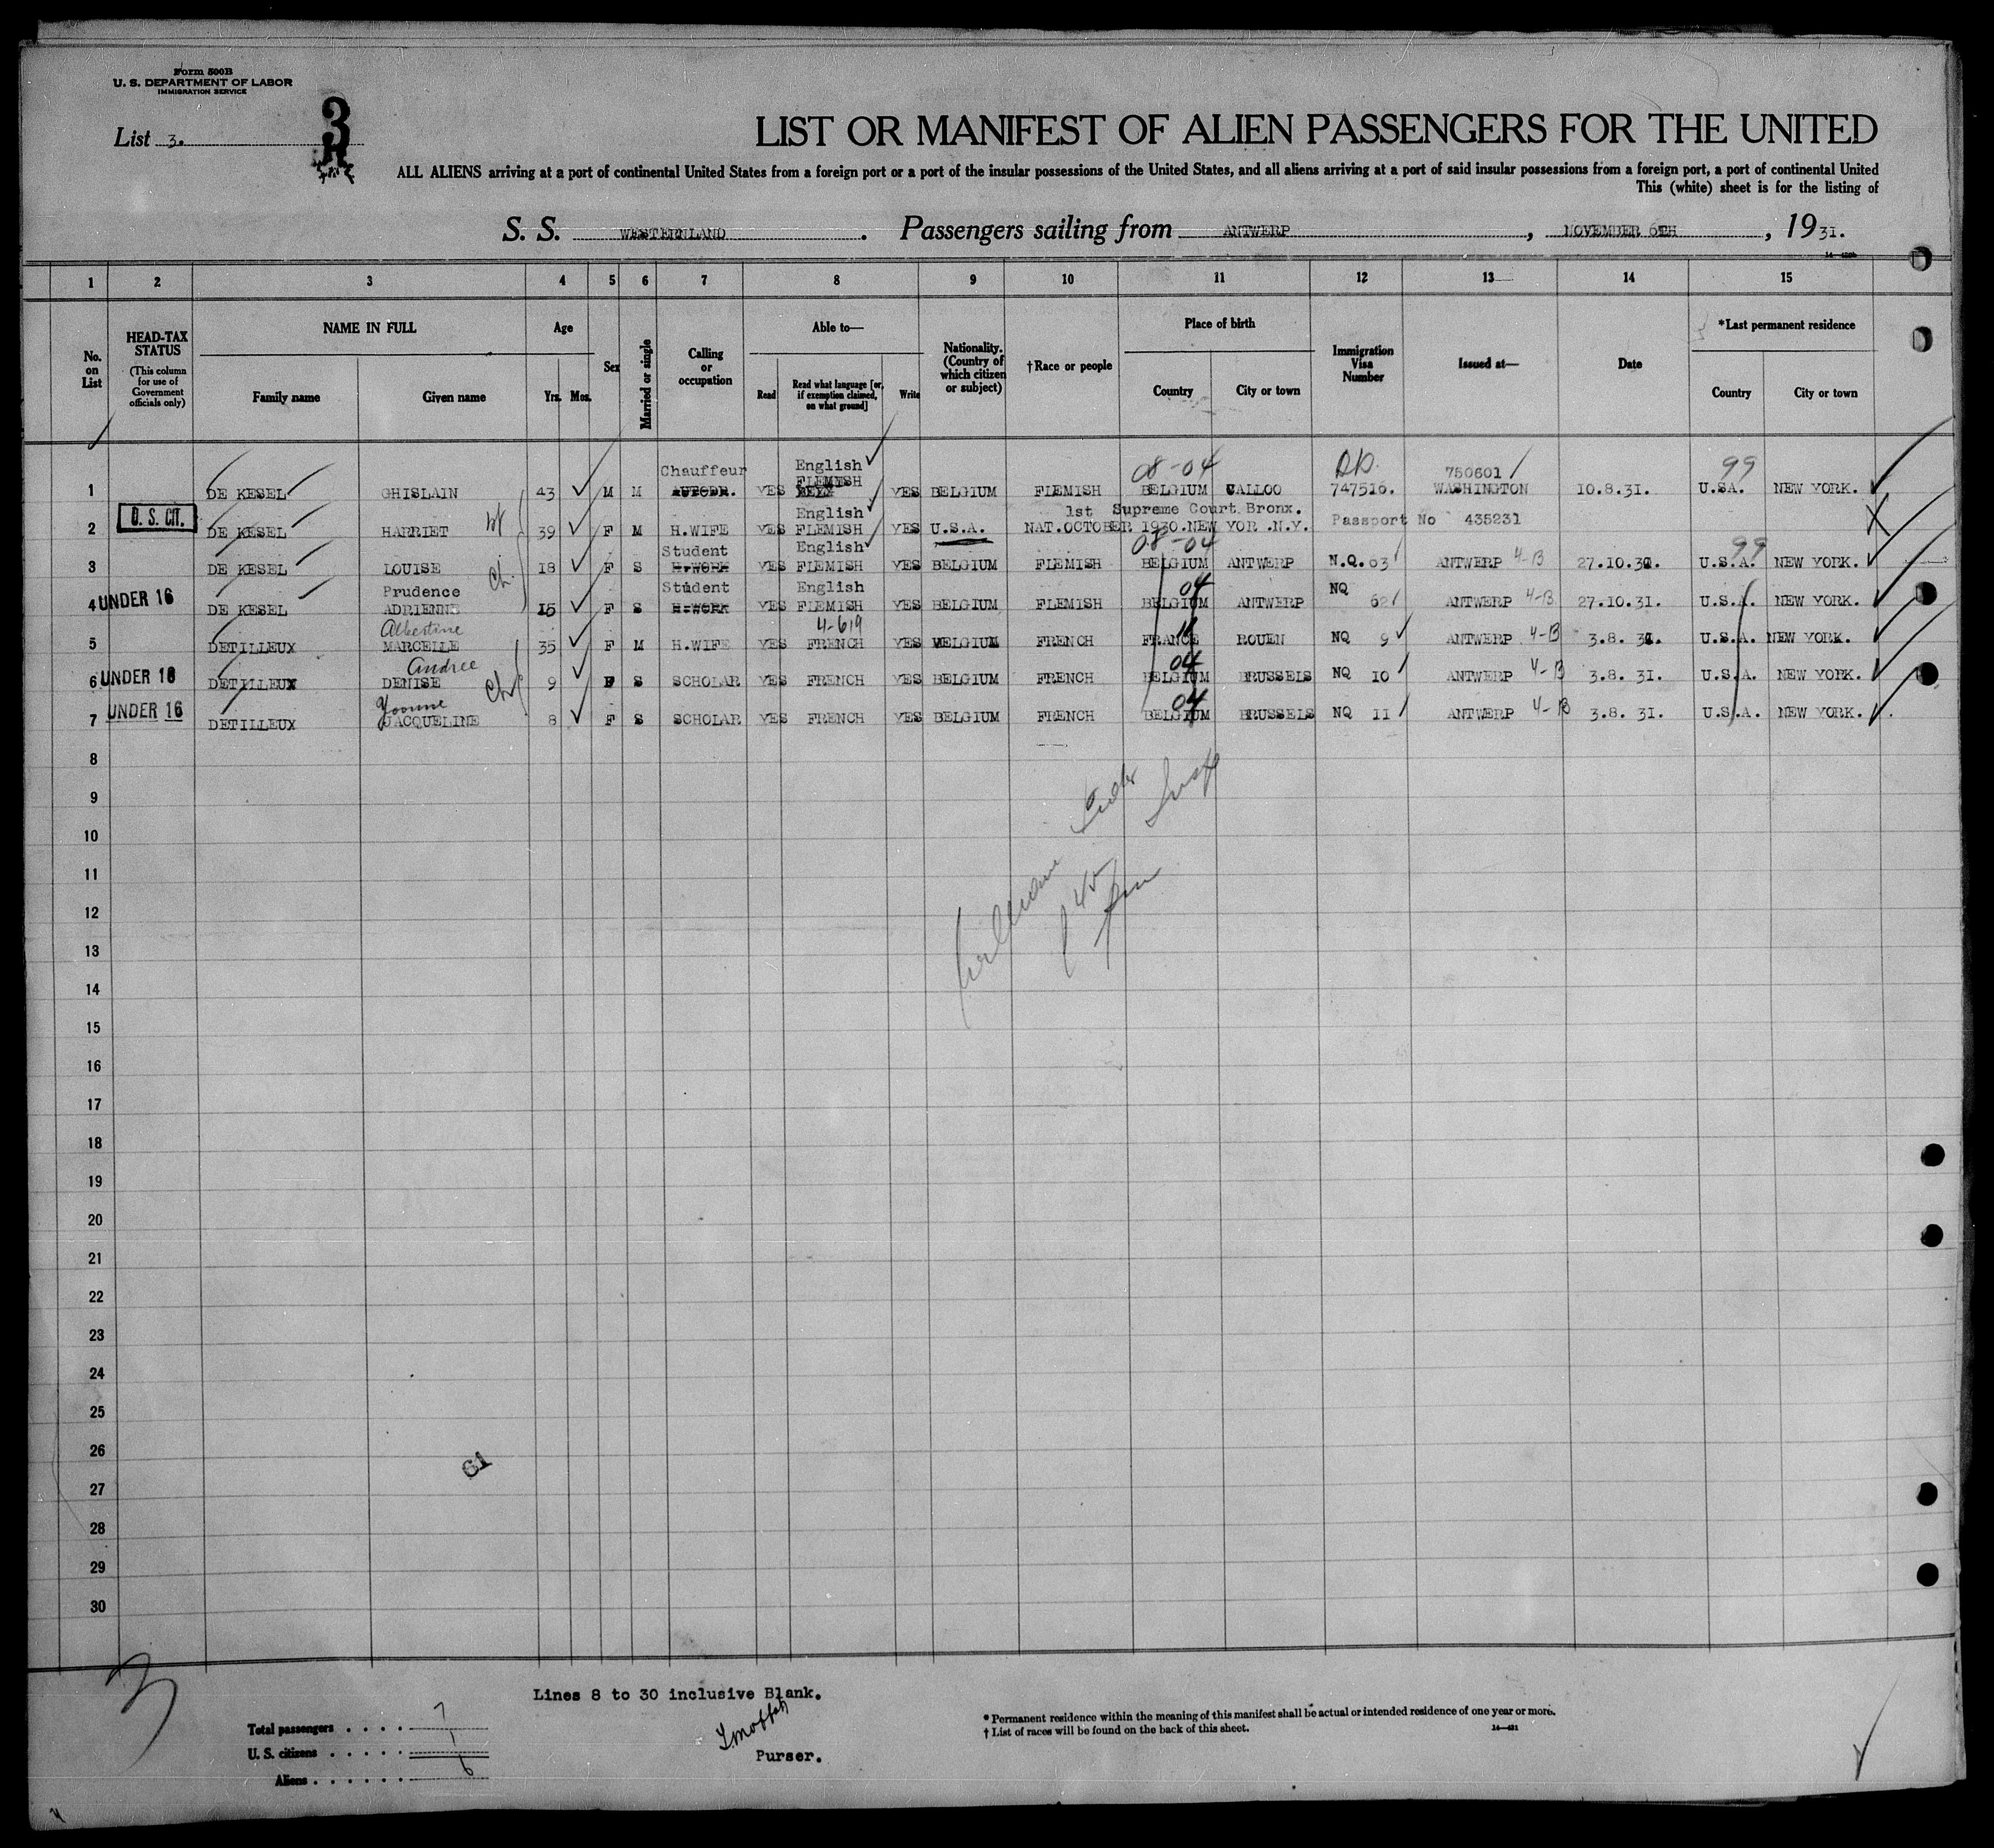 Form 500B
U. S. DEPARTMENT OF LABOR
IMMIGRATION SERVICE
List 3.
3
LIST OR MANIFEST OF ALIEN PASSENGERS FOR THE UNITED
ALL ALIENS arriving at a port of continental United States from a foreign port or a port of the insular possessions of the United States, and all aliens arriving at a port of said insular possessions from a foreign port, a port of continental United
This (white) sheet is for the listing of
S. S. WESTERNLAND. Passengers sailing from ANTWERP, NOVEMBER 6TH, 1931.
1 2 3 4 5 6 7 8 9 10 11 12 13 14 15
No. on List
HEAD-TAX STATUS (This column for use of Government officials only)
NAME IN FULL
Family name Given name
Age
Yrs. Mos.
Sex
Married or single
Calling or occupation
Able to—
Read Read what language [or, if exemption claimed, on what ground] Write
Nationality. (Country of which citizen or subject)
†Race or people
Place of birth
Country City or town
Immigration Visa Number
Issued at—
Date
*Last permanent residence
Country City or town
Chauffeur English 08-04 750601 99
1 DE KESEL GHISLAIN 43 M M AUTODR. YES FLEMISH YES BELGIUM FLEMISH BELGIUM CALLOO 747516. WASHINGTON 10.8.31. U.SA. NEW YORK.
U. S. CIT. English 1st Supreme Court Bronx.
2 DE KESEL HARRIET wf 39 F M H.WIFE YES FLEMISH YES U.S.A. NAT.OCTOBER 1930.NEW YOR .N.Y. Passport No 435231
Student English 08-04 99
3 DE KESEL LOUISE Ch. 18 F S H.WORK YES FLEMISH YES BELGIUM FLEMISH BELGIUM ANTWERP N.Q. 63 ANTWERP 4-B 27.10.31. U.S.A. NEW YORK.
Prudence Student English 04 NQ
4 UNDER 16 DE KESEL ADRIENNE 15 F S H.WORK YES FLEMISH YES BELGIUM FLEMISH BELGIUM ANTWERP 62 ANTWERP 4-B 27.10.31. U.S.A. NEW YORK.
Albertine 4-619
5 DETILLEUX MARCELLE 35 F M H.WIFE YES FRENCH YES BELGIUM FRENCH FRANCE ROUEN NQ 9 ANTWERP 4-B 3.8. 31. U.S.A. NEW YORK.
Andree 04
6 UNDER 16 DETILLEUX DENISE Ch 9 F S SCHOLAR YES FRENCH YES BELGIUM FRENCH BELGIUM BRUSSELS NQ 10 ANTWERP 4-B 3.8. 31. U.S.A. NEW YORK.
Yvonne 04
7 UNDER 16 DETILLEUX JACQUELINE 8 F S SCHOLAR YES FRENCH YES BELGIUM FRENCH BELGIUM BRUSSELS NQ 11 ANTWERP 4-B 3.8. 31. U.S.A. NEW YORK.
8
9
10
11
12
13
14
15
16
17
18
19
20
21
22
23
24
25
26
61
27
28
29
30
3
Lines 8 to 30 inclusive Blank.
Total passengers . . . . 7
U. S. citizens . . . . . 1
Aliens . . . . . . 6
Purser.
* Permanent residence within the meaning of this manifest shall be actual or intended residence of one year or more.
† List of races will be found on the back of this sheet.
14—431